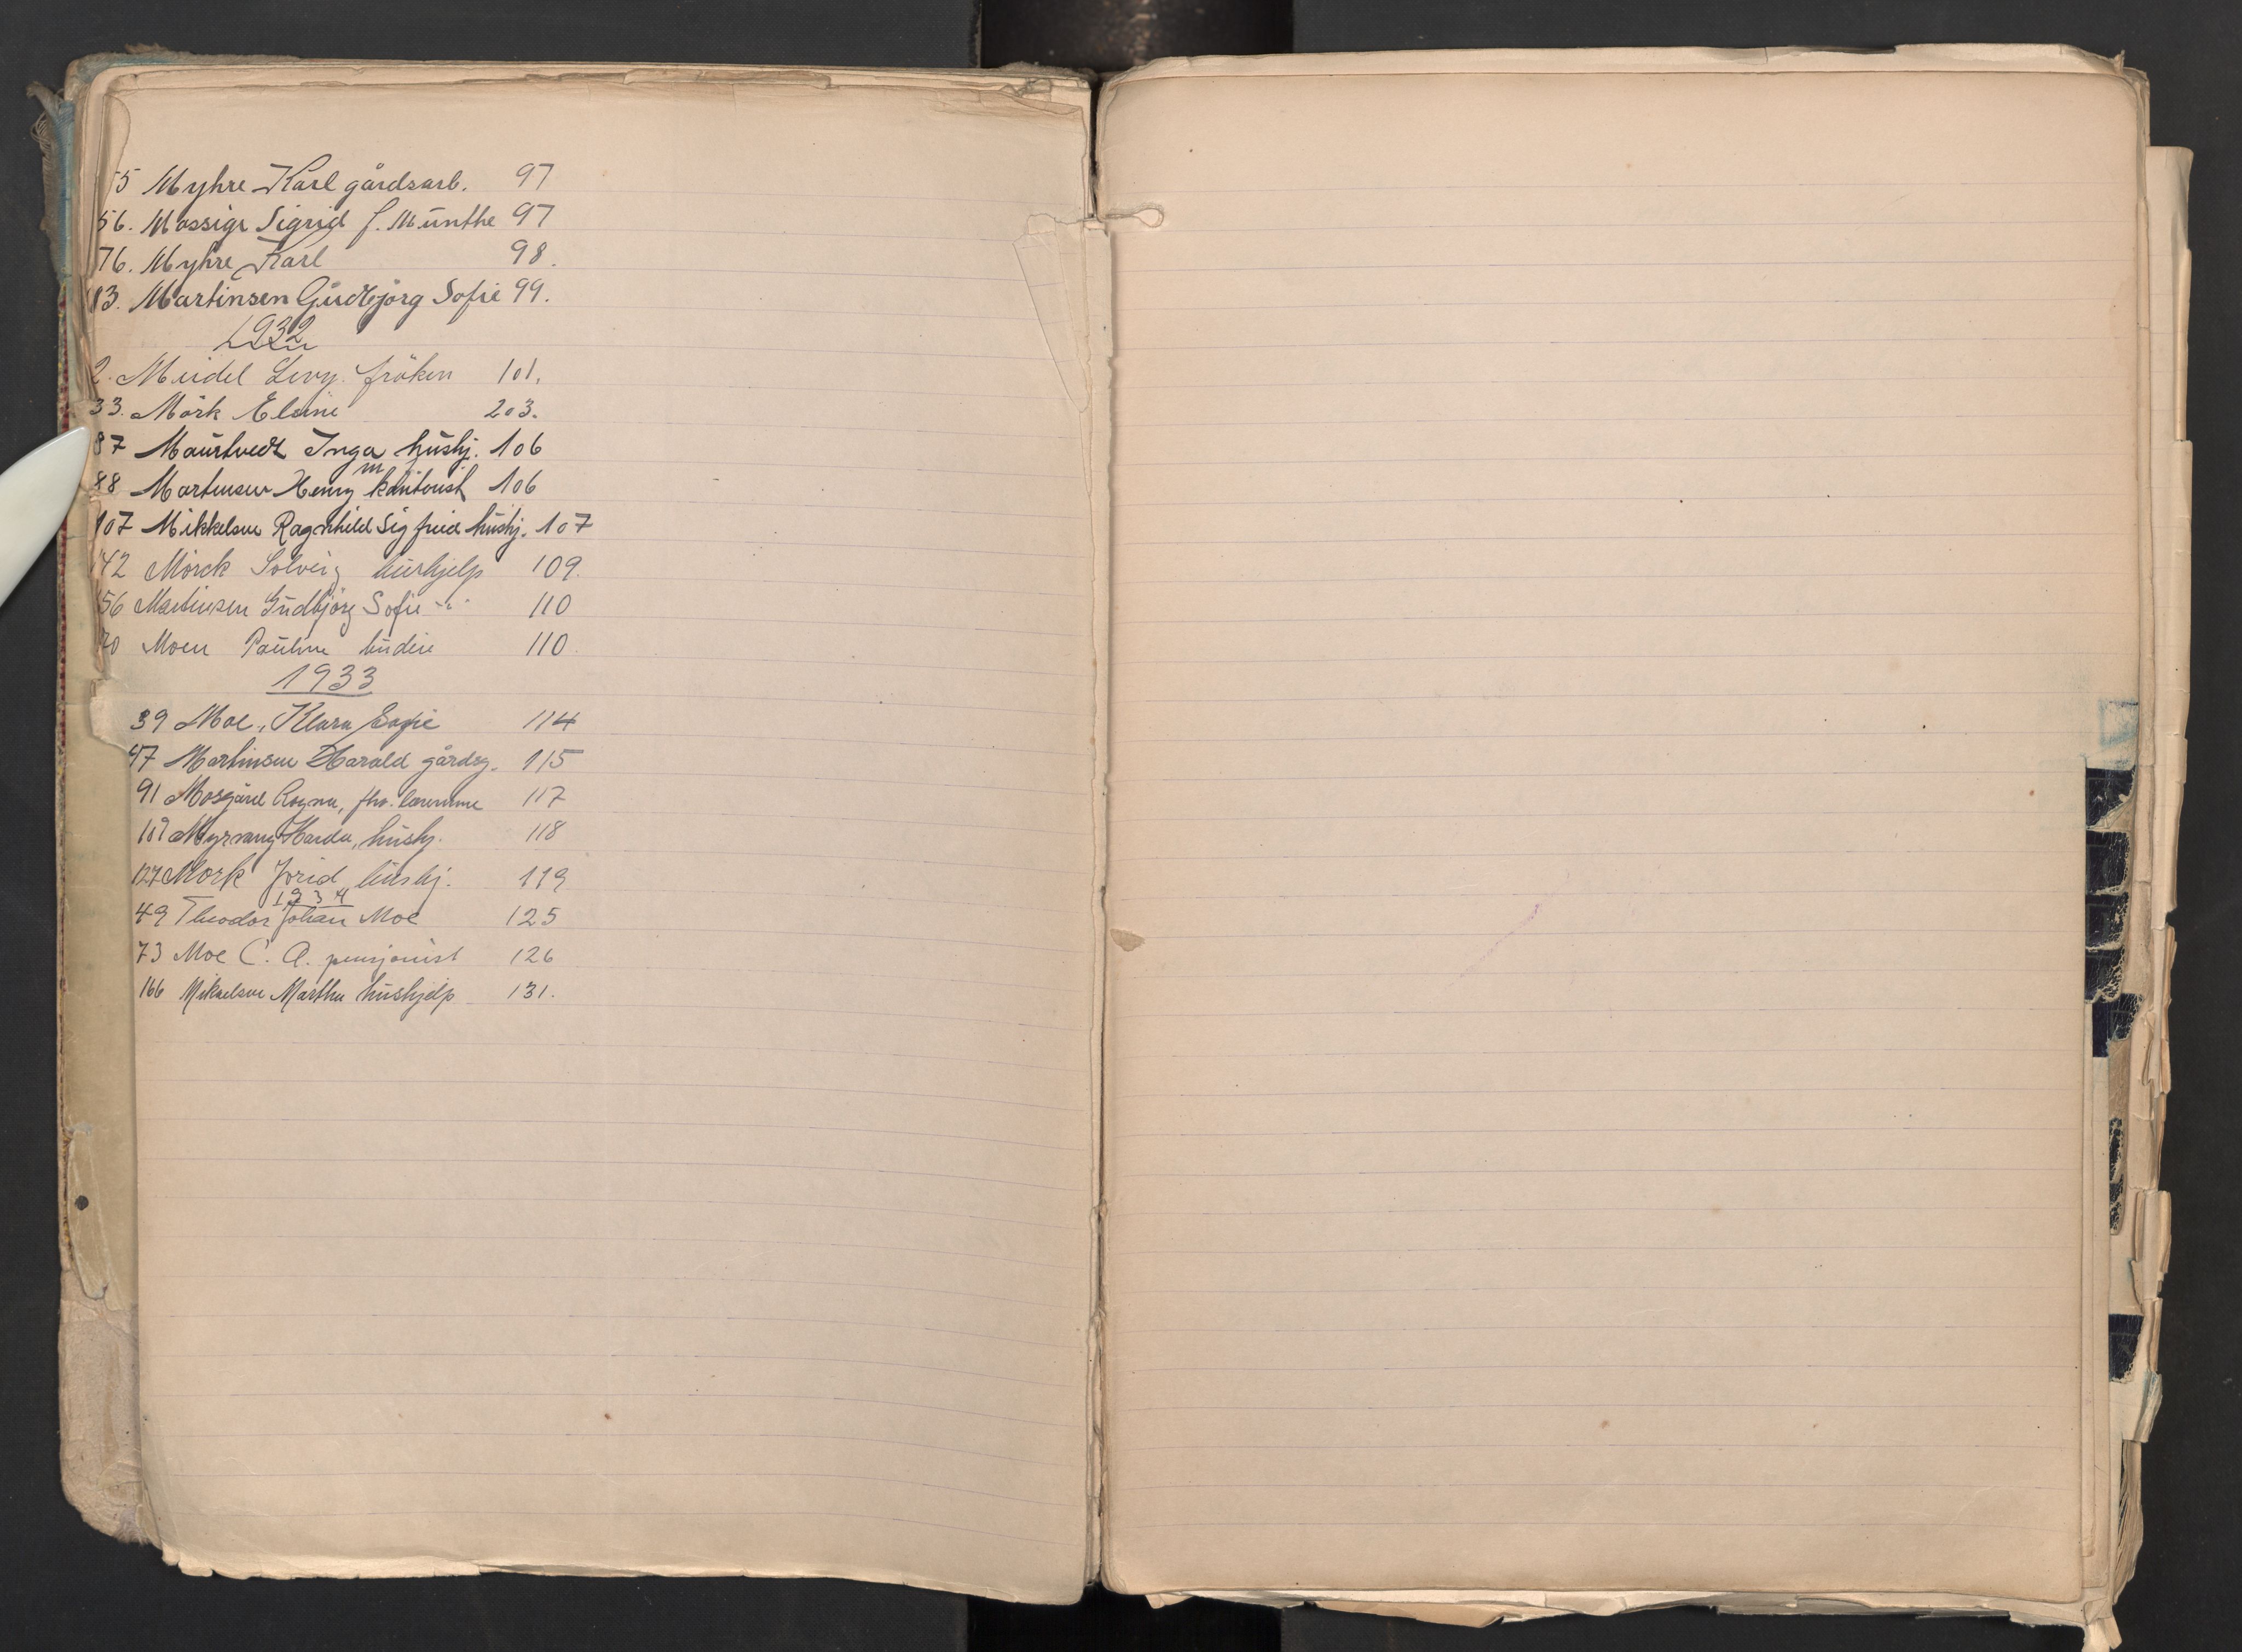 55 Myhre Karl gårdsarb. 97
56. Mossige Sigrid f. Munthe 97
76. Myhre Karl 98.
83. Martinsen Gudbjörg Sofie 99.
1932
2. Meidel Levy. fröken 101.
33. Mörk Elaine 203.
87 Maurtvedt Inga hushj. 106
88 Martinsen Henry m kontorist 106
107 Mikkelsen Ragnhild Sigfrid hushj. 107
142 Mörck Solveig hushjelp 109.
156 Martinsen Gudbjörg Sofie -"- 110
Moen Pauline 110.
1933
39 Moe, Klara Sofie 114
47 Martinsen Harald gårdsg. 115
91 Mosgård Ragna, 117
Myrvang hushj. 118
127 Mork Jorid hushj. 119
1934
49 Theodor Johan Moe 125
73 Moe C. A. pensjonist 126
166 Mikaelsen Martha hushjelp 131.